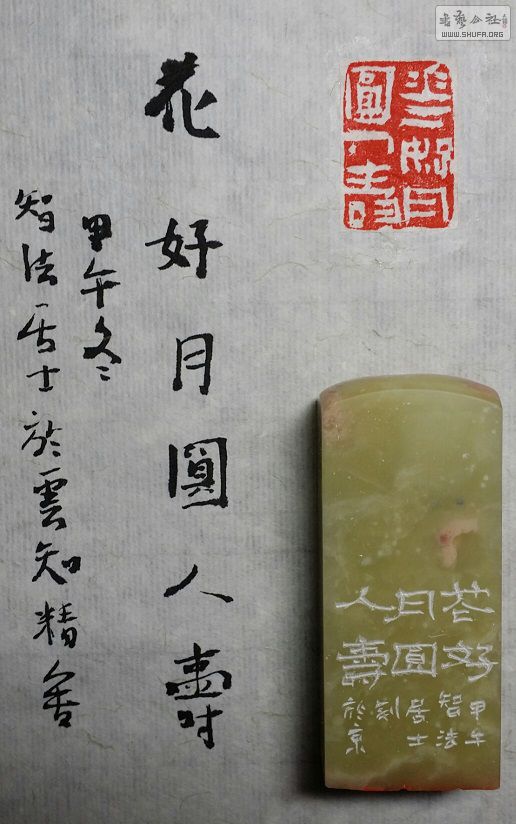 書藝公社
WWW.SHUFA.ORG
花好月圓人壽
花好月圓人壽
甲午冬
智法居士於雲知精舍
花好
月圓
人壽
甲午
智法
居士
刻
於京